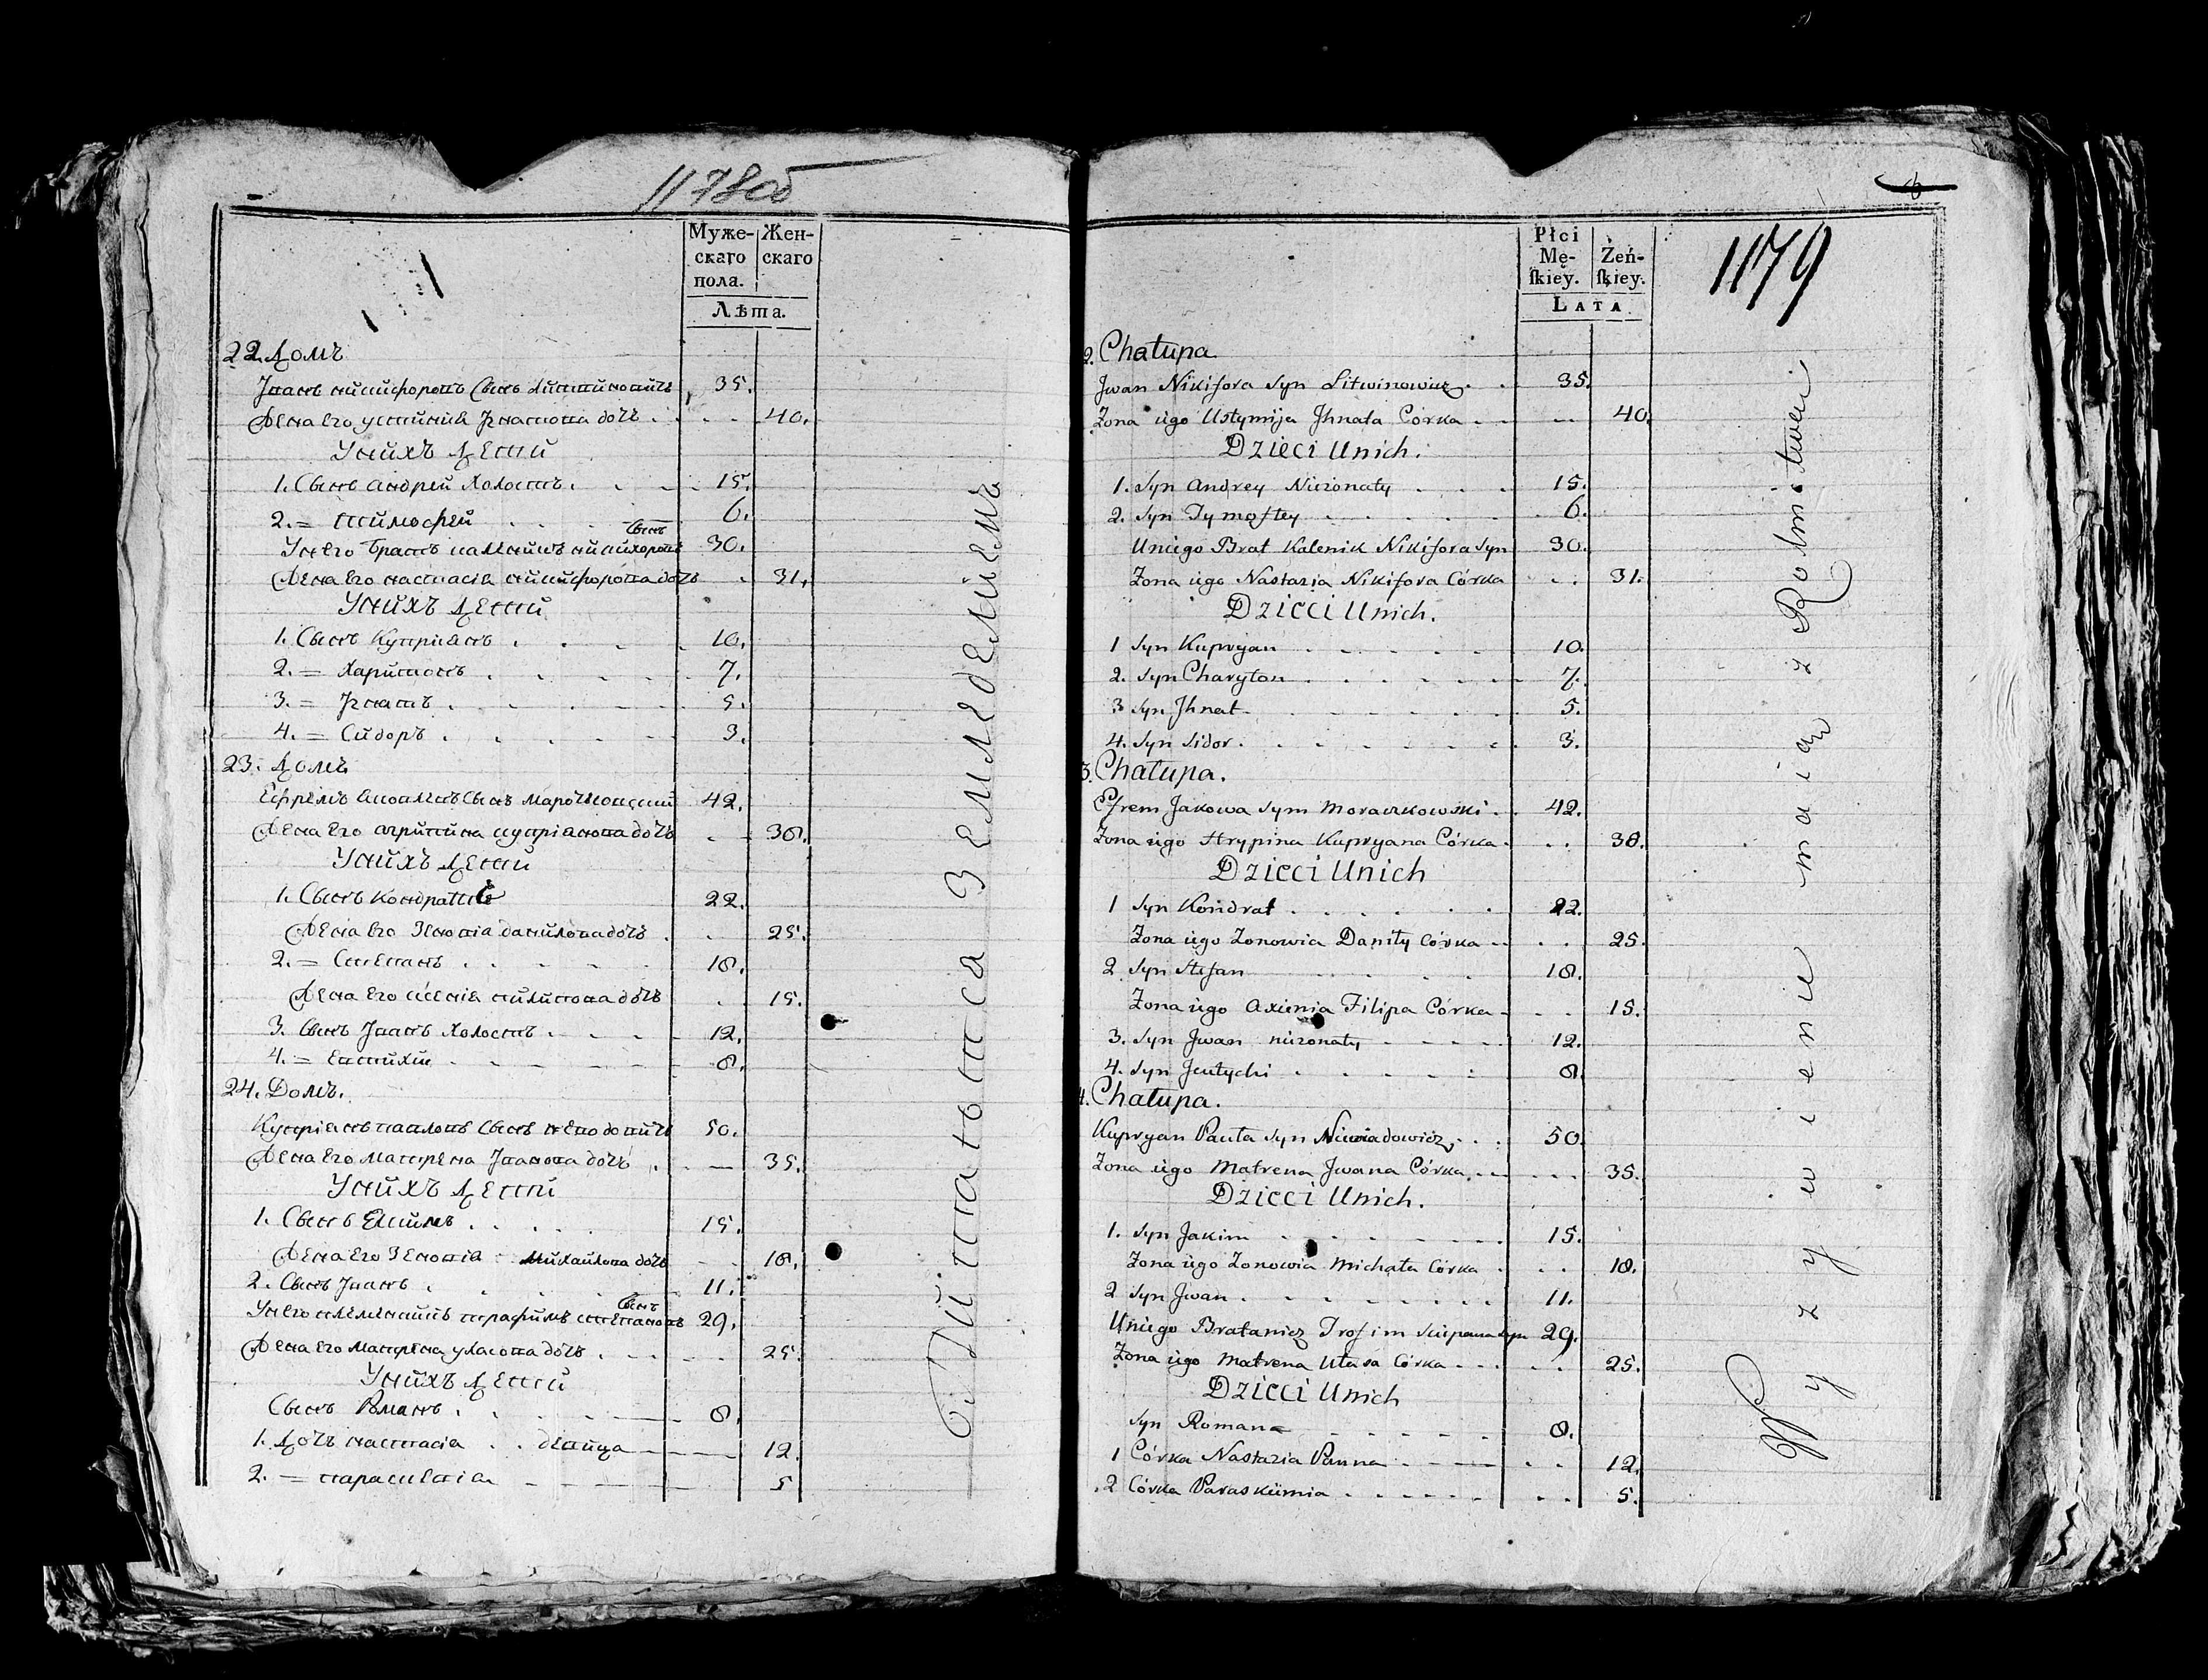 1178об
Муже-
скаго
пола.
Жен-
скаго
Лѣта.
22. Домъ
Іванъ никифоровъ Сынъ литвиновичъ 35.
Жена его устинія Ігнатова дочь 40.
Унихъ Дѣтей
1. Сынъ андрей Холостъ. 15.
2. = тимофей 6.
Унего братъ каленикъ никихоровъ Сынъ 30.
Жена его настасія никифорова дочь 31.
Унихъ Дѣтей
1. Сынъ Купріянъ 10.
2. = Харитонъ 7.
3. = Ігнатъ 5.
4. = Сидоръ 3.
23. Домъ
Ефремъ яковлевъ Сынъ марочковский 42.
Жена Его агрипина купріянова дочь 38.
Унихъ Дѣтей
1. Сынъ Кондратий 22.
Жена Его Зеновія данилова дочь 25.
2. = Степанъ 18.
Жена Его ксенія пилипова дочь 15.
3. Сынъ Іванъ Холостъ 12.
4. = Евтихій 8.
24. Домъ.
Купріянъ павловъ Сынъ неводовичъ 50.
Жена Его матрена Іванова дочь 35.
Унихъ Дѣтей
1. Сынъ Якимъ 15.
Жена Его Зеновія михайлова дочь 18.
2. Сынъ Іванъ 11.
Унего племенникъ трафимъ степановъ Сынъ 29.
Жена Его матрена уласова дочь 25.
Унихъ Дѣтей
Сынъ Романъ 8.
1. Дочь настасія девица 12.
2. = парасковія 5
Питаются Земледелиемъ
1179
Płci
Mę-
ſkiey.
Żeń-
ſkiey.
LATA
2. Chałupa
Jwan Nikifora Syn Litwinowicz 35.
Zona iego Ustymija Jhnata Córka 40.
Dzieci Unich.
1. Syn Andrey Nieżonaty 15.
2. Syn Tymoftey 6.
Uniego Brat Kalenik Nikifora Syn 30.
Zona iego Nastazia Nikifora Córka 31.
Dzieci Unich.
1 Syn Kupryan 10.
2. Syn Charyton 7.
3 Syn Jhnat 5.
4. Syn Sidor. 3.
3. Chałupa.
Efrem Jakowa Syn Moraczkowski 42.
Zona iego Hrypina Kupryana Córka 38.
Dzieci Unich
1 Syn Kondrat 22.
Zona iego Zonowia Daniły Córka 25.
2 Syn Stefan 18.
Zona iego Axienia Filipa Córka 15.
3. Syn Jwan nieżonaty 12.
4. Syn Jeutychi 8
4. Chałupa.
Kupryan Pauła Syn Niewiadowicz 50
Zona iego Matrena Jwana Córka 35.
Dzieci Unich.
1. Syn Jakim 15.
Zona iego Zonowia Michała Córka 18.
2 Syn Jwan 11.
Uniego Bratanicz Trofim Sciepana Syn 29.
Zona iego Matrena Ułasa Córka 25.
Dzieci Unich
Syn Roman 8.
1 Córka Nastazia Panna 12.
2 Córka Paraskiewia 5.
Wyzywienie maią z Rolnictwa